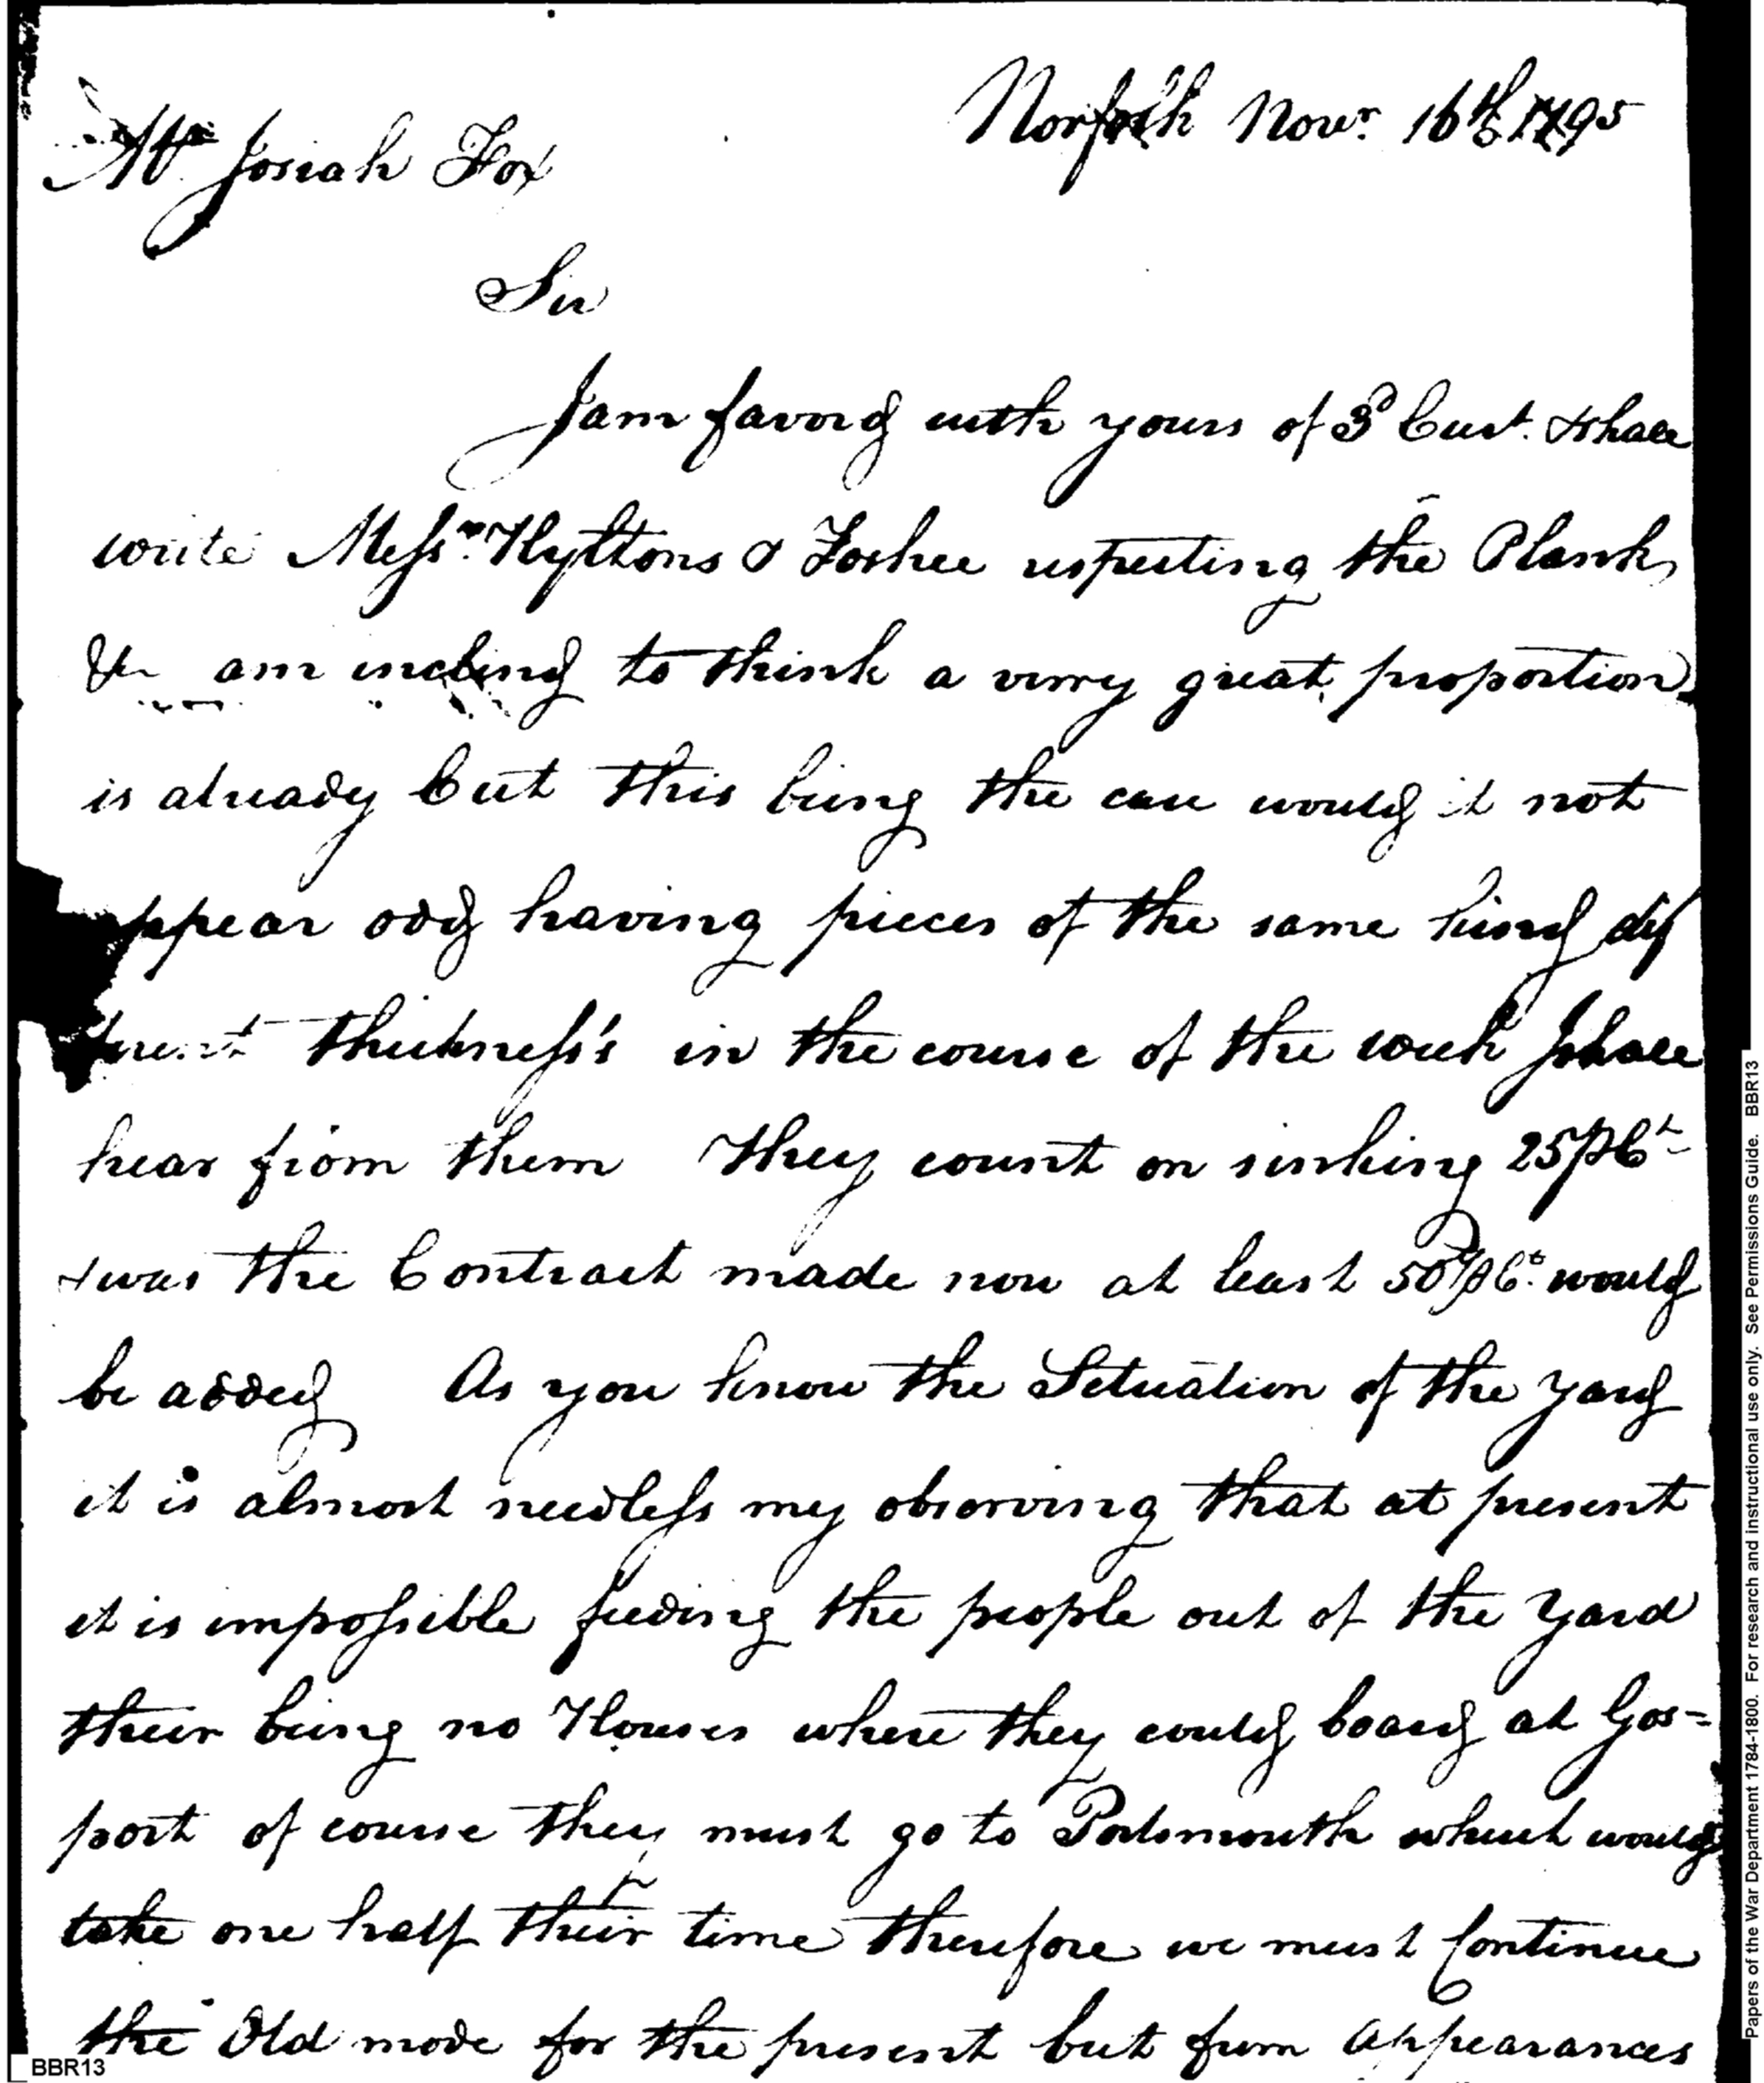 Norfolk Novr. 16th 1795
Mr Josiah Fox
Sir
I am favord with yours of 3d Curt. & shall
write Messrs. Hyltons & Foshee respecting the Plank
& am inclined to think a verry great proportion
is already Cut this being the case would it not
appear odd having pieces of the same kind dif
ferent thickness's in the course of the week I shall
hear from them They count on sinking 25 pCt
& was the Contract made now at least 50 pCt. would
be added As you know the Situation of the yard
it is almost needless my observing that at present
it is impossible feeding the people out of the Yard
their being no Houses where they could board at Gos=
port of course they must go to Portsmouth which would
take one half their time therefore we must Continue
the Old mode for the present but from appearances
BBR13
Papers of the War Department 1784-1800. For research and instructional use only. See Permissions Guide. BBR13